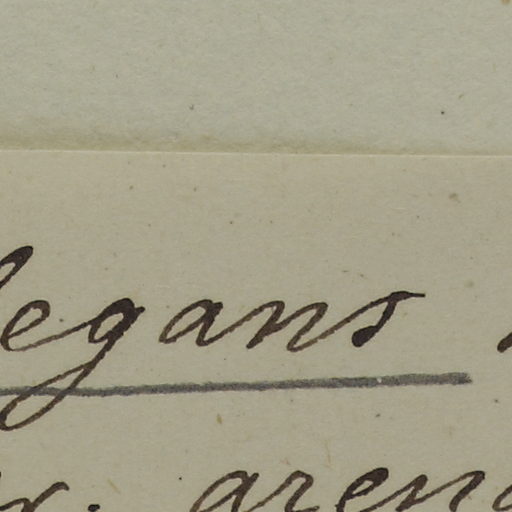 legans
r. aren